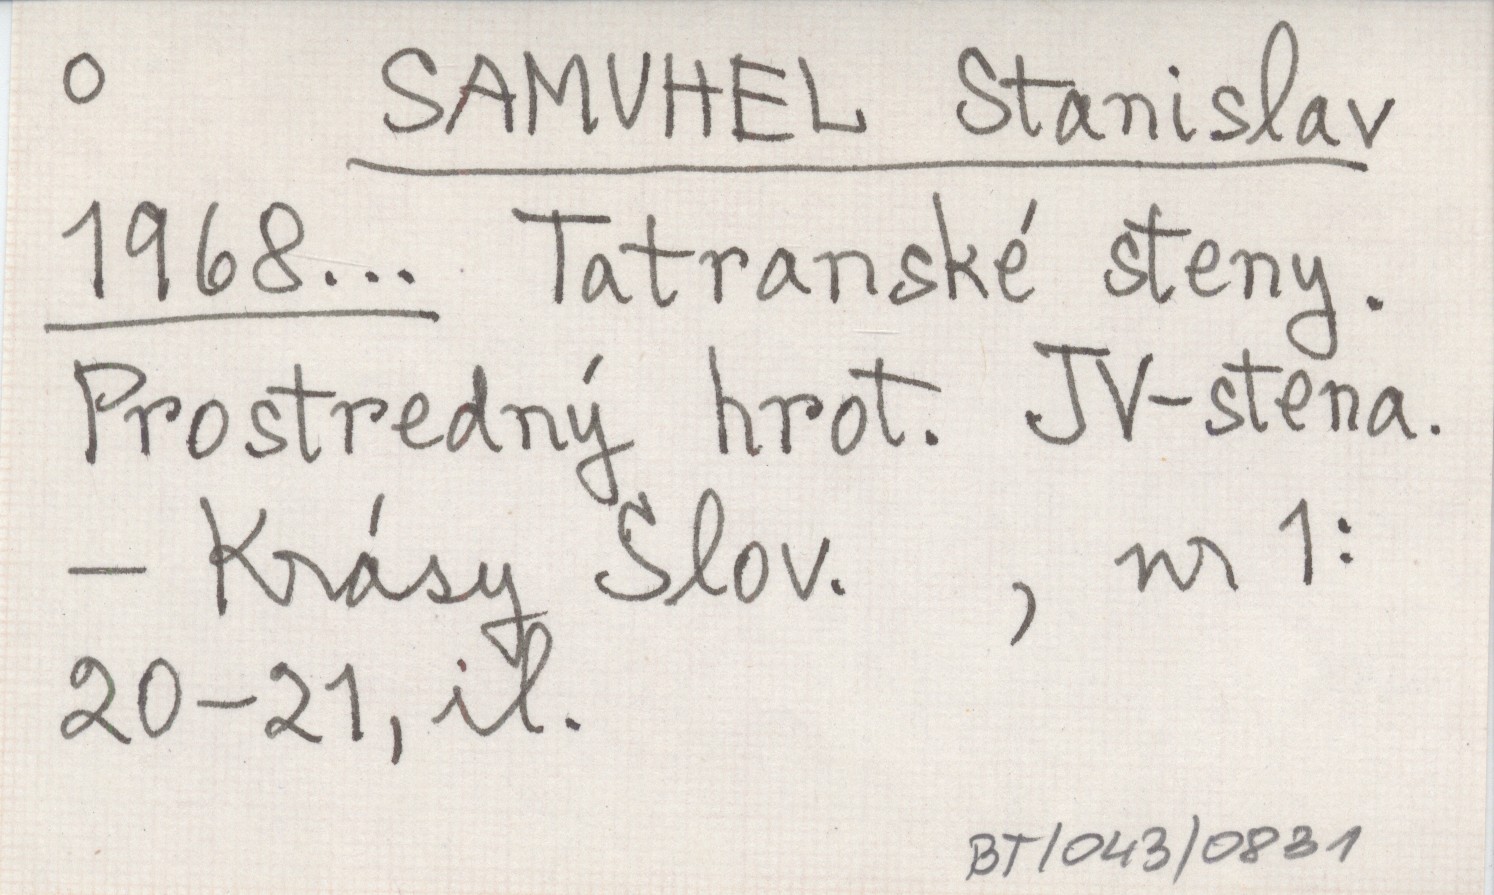 o SAMUHEL Stanislav
1968... Tatranské steny.
Prostredný hrot. JV-stena.
– Krásy Slov. , nr 1:
20–21, il.
BT/043/0831